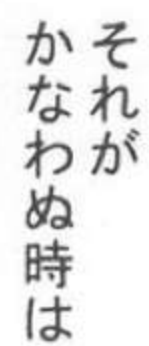 それが
かなわぬ時は